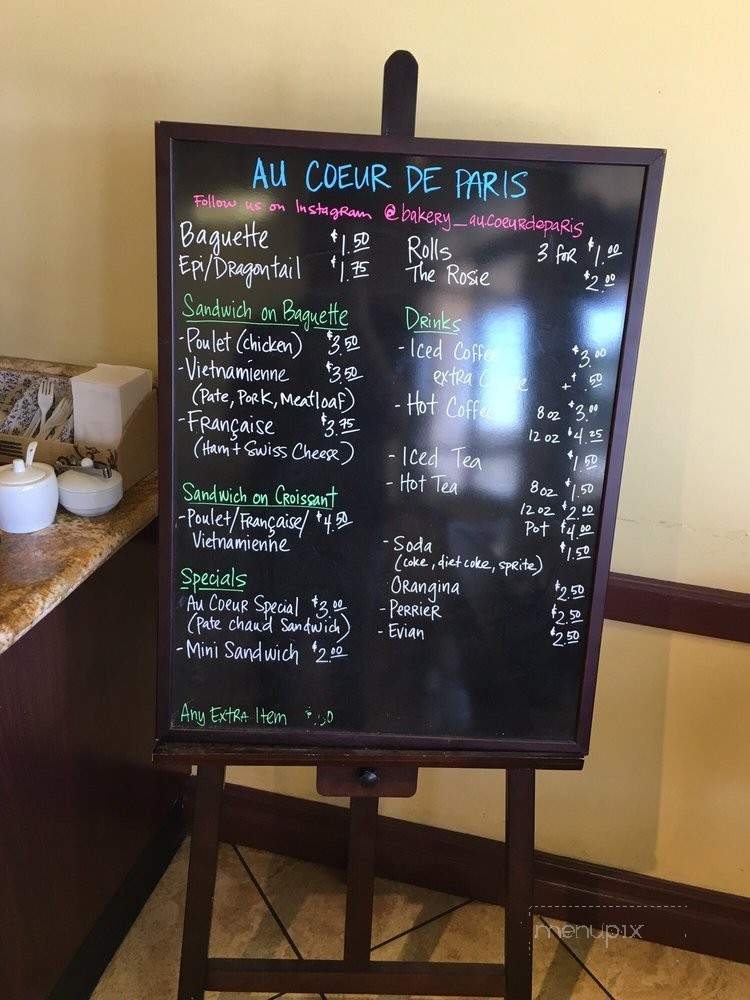 AU COEUR DE PARIS
Follow us on Instagram @bakery_aucoeurdeparis
Baguette $1.50
Epi/Dragontail $1.75
Sandwich on Baguette
- Poulet (chicken) $3.50
- Vietnamienne $3.50
(Pate, Pork, Meatloaf)
- Française $3.75
(Ham + Swiss Cheese)
Sandwich on Croissant
- Poulet/Française/ $4.50
Vietnamienne
Specials
Au Coeur Special $3.00
(Pate chaud Sandwich)
- Mini Sandwich $2.00
Any Extra Item $.50
Rolls 3 for $1.00
The Rosie $2.00
Drinks
- Iced Coffee $3.00
extra + $.50
- Hot Coffee 8oz $3.00
12oz $4.25
- Iced Tea $1.50
- Hot Tea 8oz $1.50
12oz $2.00
Pot $4.00
- Soda $1.50
(coke, diet coke, sprite)
Orangina $2.50
- Perrier $2.50
- Evian $2.50
menupix